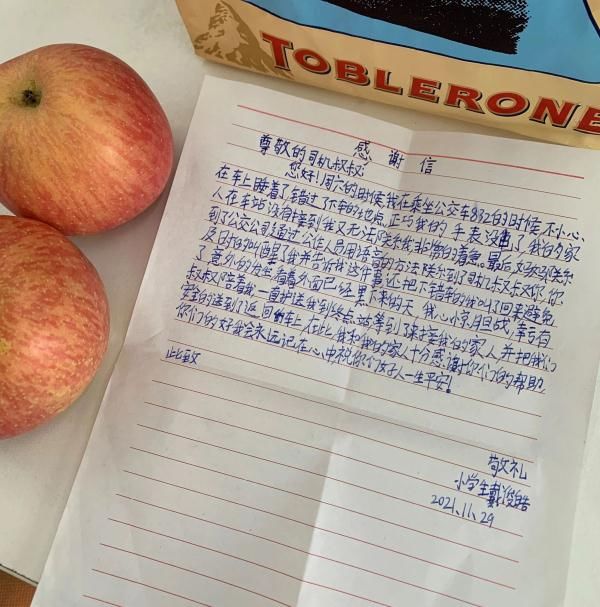 TOBLERONE
感谢信
尊敬的司机叔叔
您好！周六的时候我在乘坐公交车882的时候不小心
在车上睡着了错过了下车的地点，正巧我的手表没电了我的家
人在车站没有接到我又无法联系我非常的着急。最后我家联系
到了公交公司通过工作人员用语音的方法联系到司机叔叔你，你
及时的叫醒了我并告诉我这件事还把下错車的我叫了回来避免
了意外的发生看着外面已经黑下来的天，我心惊胆战，幸有
叔叔陪着我一直护送我到终点站等到了来接我的家人并把我们
安全的送到了返回的车上在此我和我的家人十分感谢你们的帮助
你们的好我会永远记在心中祝你们好人一生平安！
此致
敬礼
小学生戴俊皓
2021.11.29